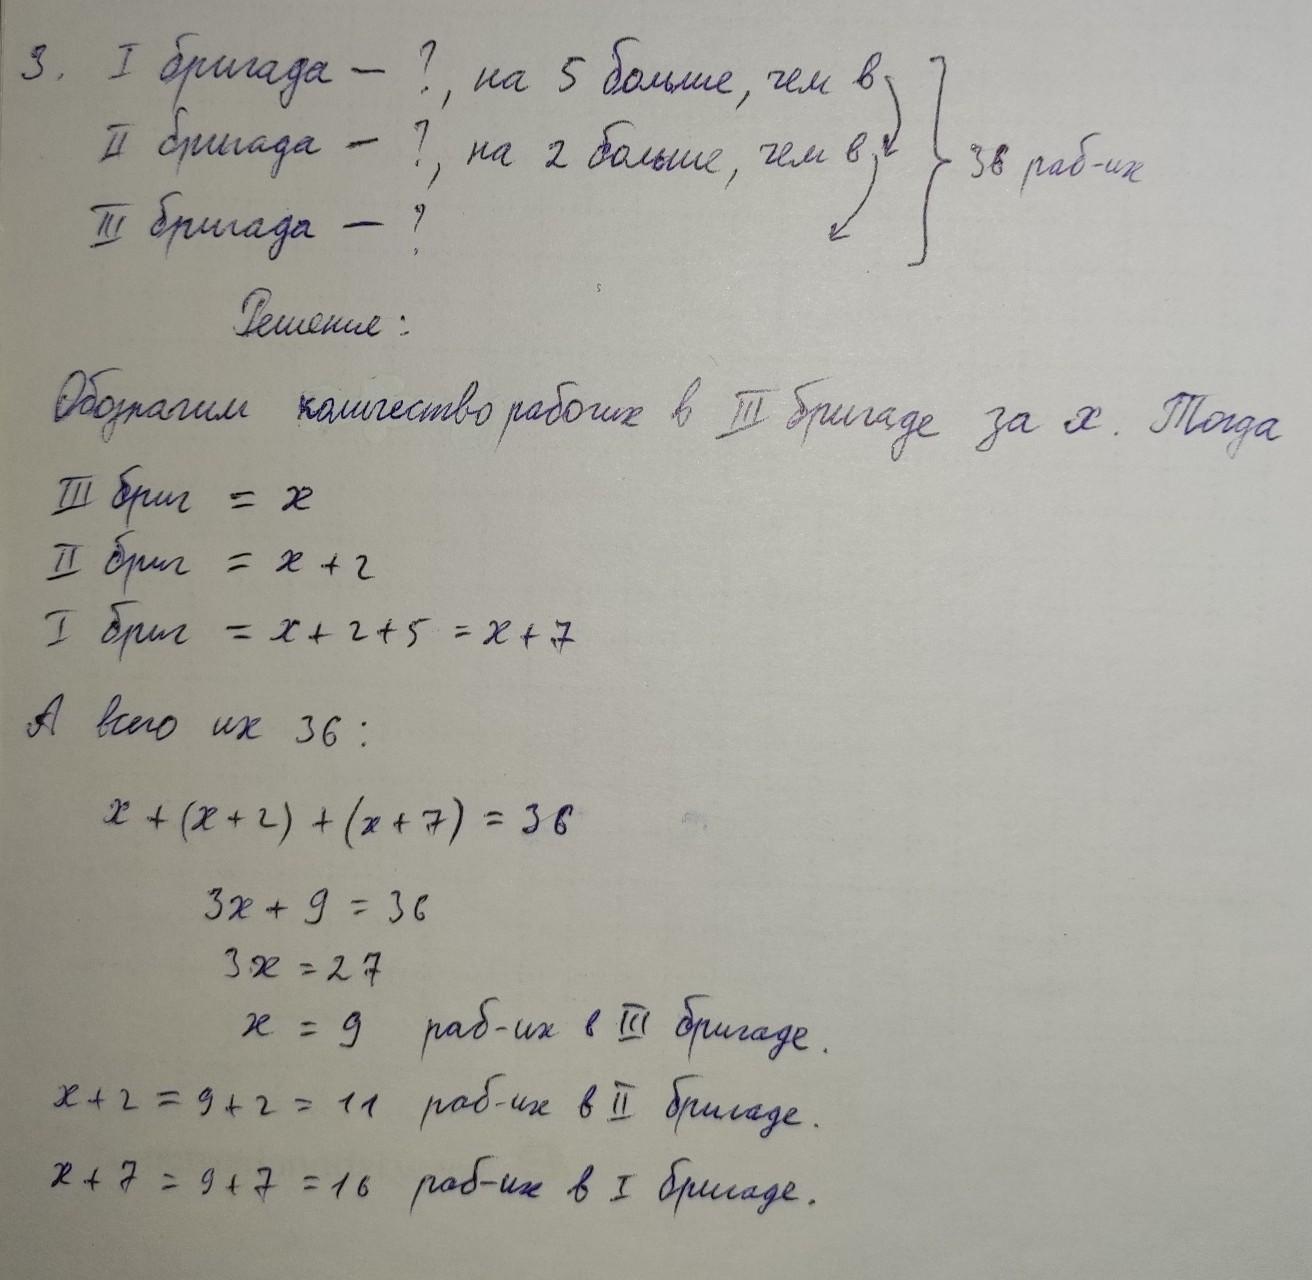 3. I бригада – ?, на 5 больше, чем в
II бригада – ?, на 2 больше, чем в
III бригада – ?
36 раб-их
Решение:
Обозначим количество рабочих в III бригаде за x. Тогда
III бриг = x
II бриг = x + 2
I бриг = x + 2 + 5 = x + 7
А всего их 36:
x + (x + 2) + (x + 7) = 36
3x + 9 = 36
3x = 27
x = 9 раб-их в III бригаде.
x + 2 = 9 + 2 = 11 раб-их в II бригаде.
x + 7 = 9 + 7 = 16 раб-их в I бригаде.